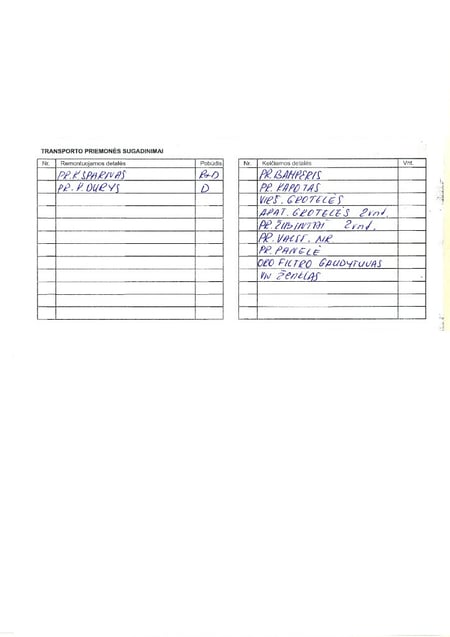 TRANSPORTO PRIEMONĖS SUGADINIMAI
Nr. Remontuojamos detalės Pobūdis
PR. K SPARNAS R+D
PR. K DURYS D
Nr. Keičiamos detalės Vnt.
PR. BAMPERIS
PR. KAPOTAS
VIRŠ. GROTELĖS
APAT. GROTELĖS 2 vnt.
PR. ŽIBINTAI 2 vnt.
PR. VALST. NR
PR. PANELĖ
ORO FILTRO GAUDYTUVAS
VW ŽENKLAS